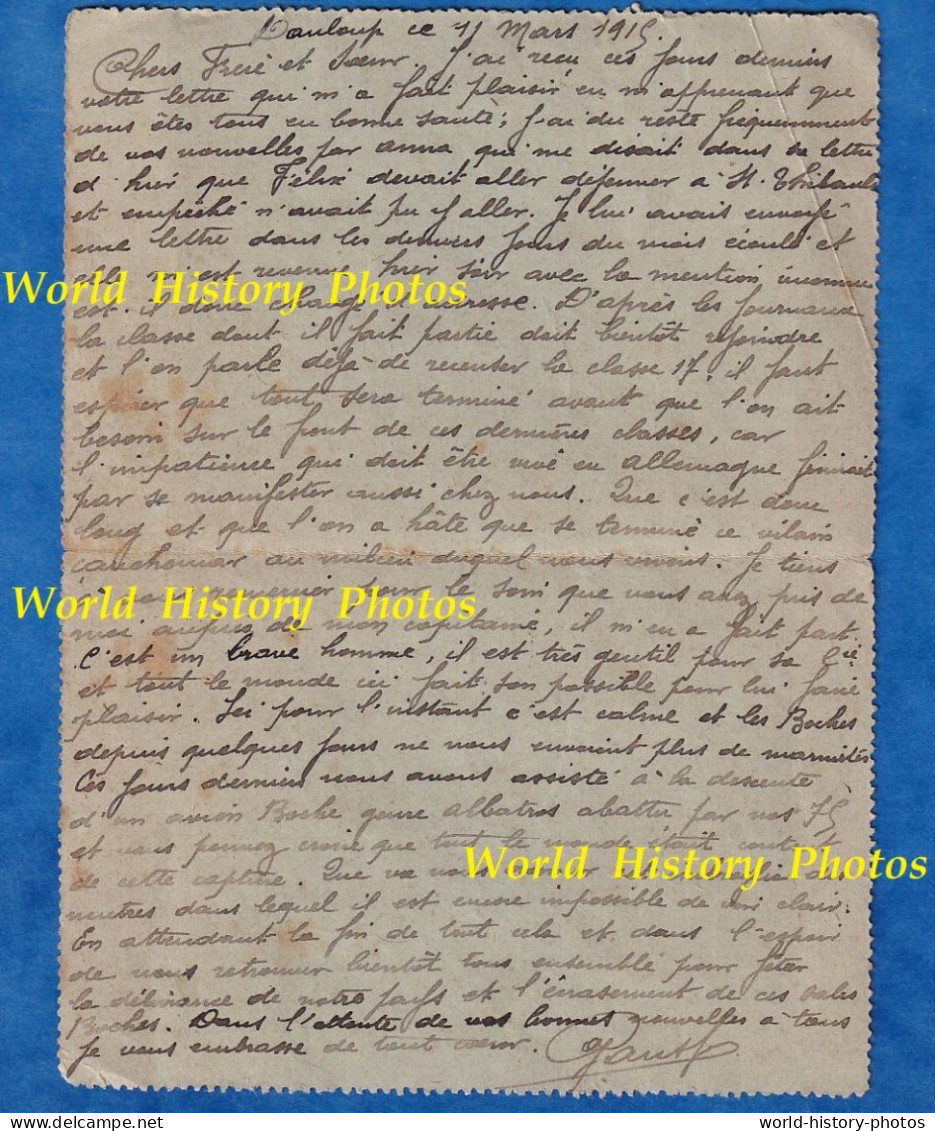 Dauloup ce 11 Mars 1915.
Chers Frère et Soeur. J'ai reçu ces jours derniers
votre lettre qui m'a fait plaisir en m'apprenant que
vous êtes tous en bonne santé; j'ai du reste fréquemment
de vos nouvelles par anna qui me disait dans sa lettre
d'hier que Félix devait aller déjeuner à St. Thibault
et empêché n'avait pu y aller. Je lui avais envoyé
une lettre dans les derniers jours du mois écoulé et
elle m'est revenue hier soir avec la mention inconnu
est-il donc changé d'adresse. D'après les journaux
la classe dont il fait partie doit bientôt rejoindre
et l'on parle déjà de recenser la classe 17, il faut
espérer que tout sera terminé avant que l'on ait
besoin sur le front de ces dernières classes, car
l'impatience qui doit être vive en allemagne finirait
par se manifester aussi chez nous. Que c'est donc
long et que l'on a hâte que se termine ce vilain
cauchemar au milieu duquel nous vivons. Je tiens
à vous remercier pour le soin que vous avez pris de
moi auprès de mon capitaine, il m'en a fait part.
C'est un brave homme, il est très gentil pour sa Cie
et tout le monde ici fait son possible pour lui faire
plaisir. Ici pour l'instant c'est calme et les Boches
depuis quelques jours ne nous envoient plus de marmites
Ces jours derniers nous avons assisté à la descente
d'un avion Boche genre albatros abattu par nos 75
et vous pouvez croire que tout le monde était content
de cette capture. Que va nous
neutres dans lequel il est encore impossible de voir clair.
En attendant la fin de tout cela et dans l'espoir
de nous retrouver bientôt tous ensemble pour fêter
la délivrance de notre pays et l'écrasement de ces sales
Boches. Dans l'attente de vos bonnes nouvelles à tous
Je vous embrasse de tout coeur.
World History Photos
World History Photos
World History Photos
world-history-photos